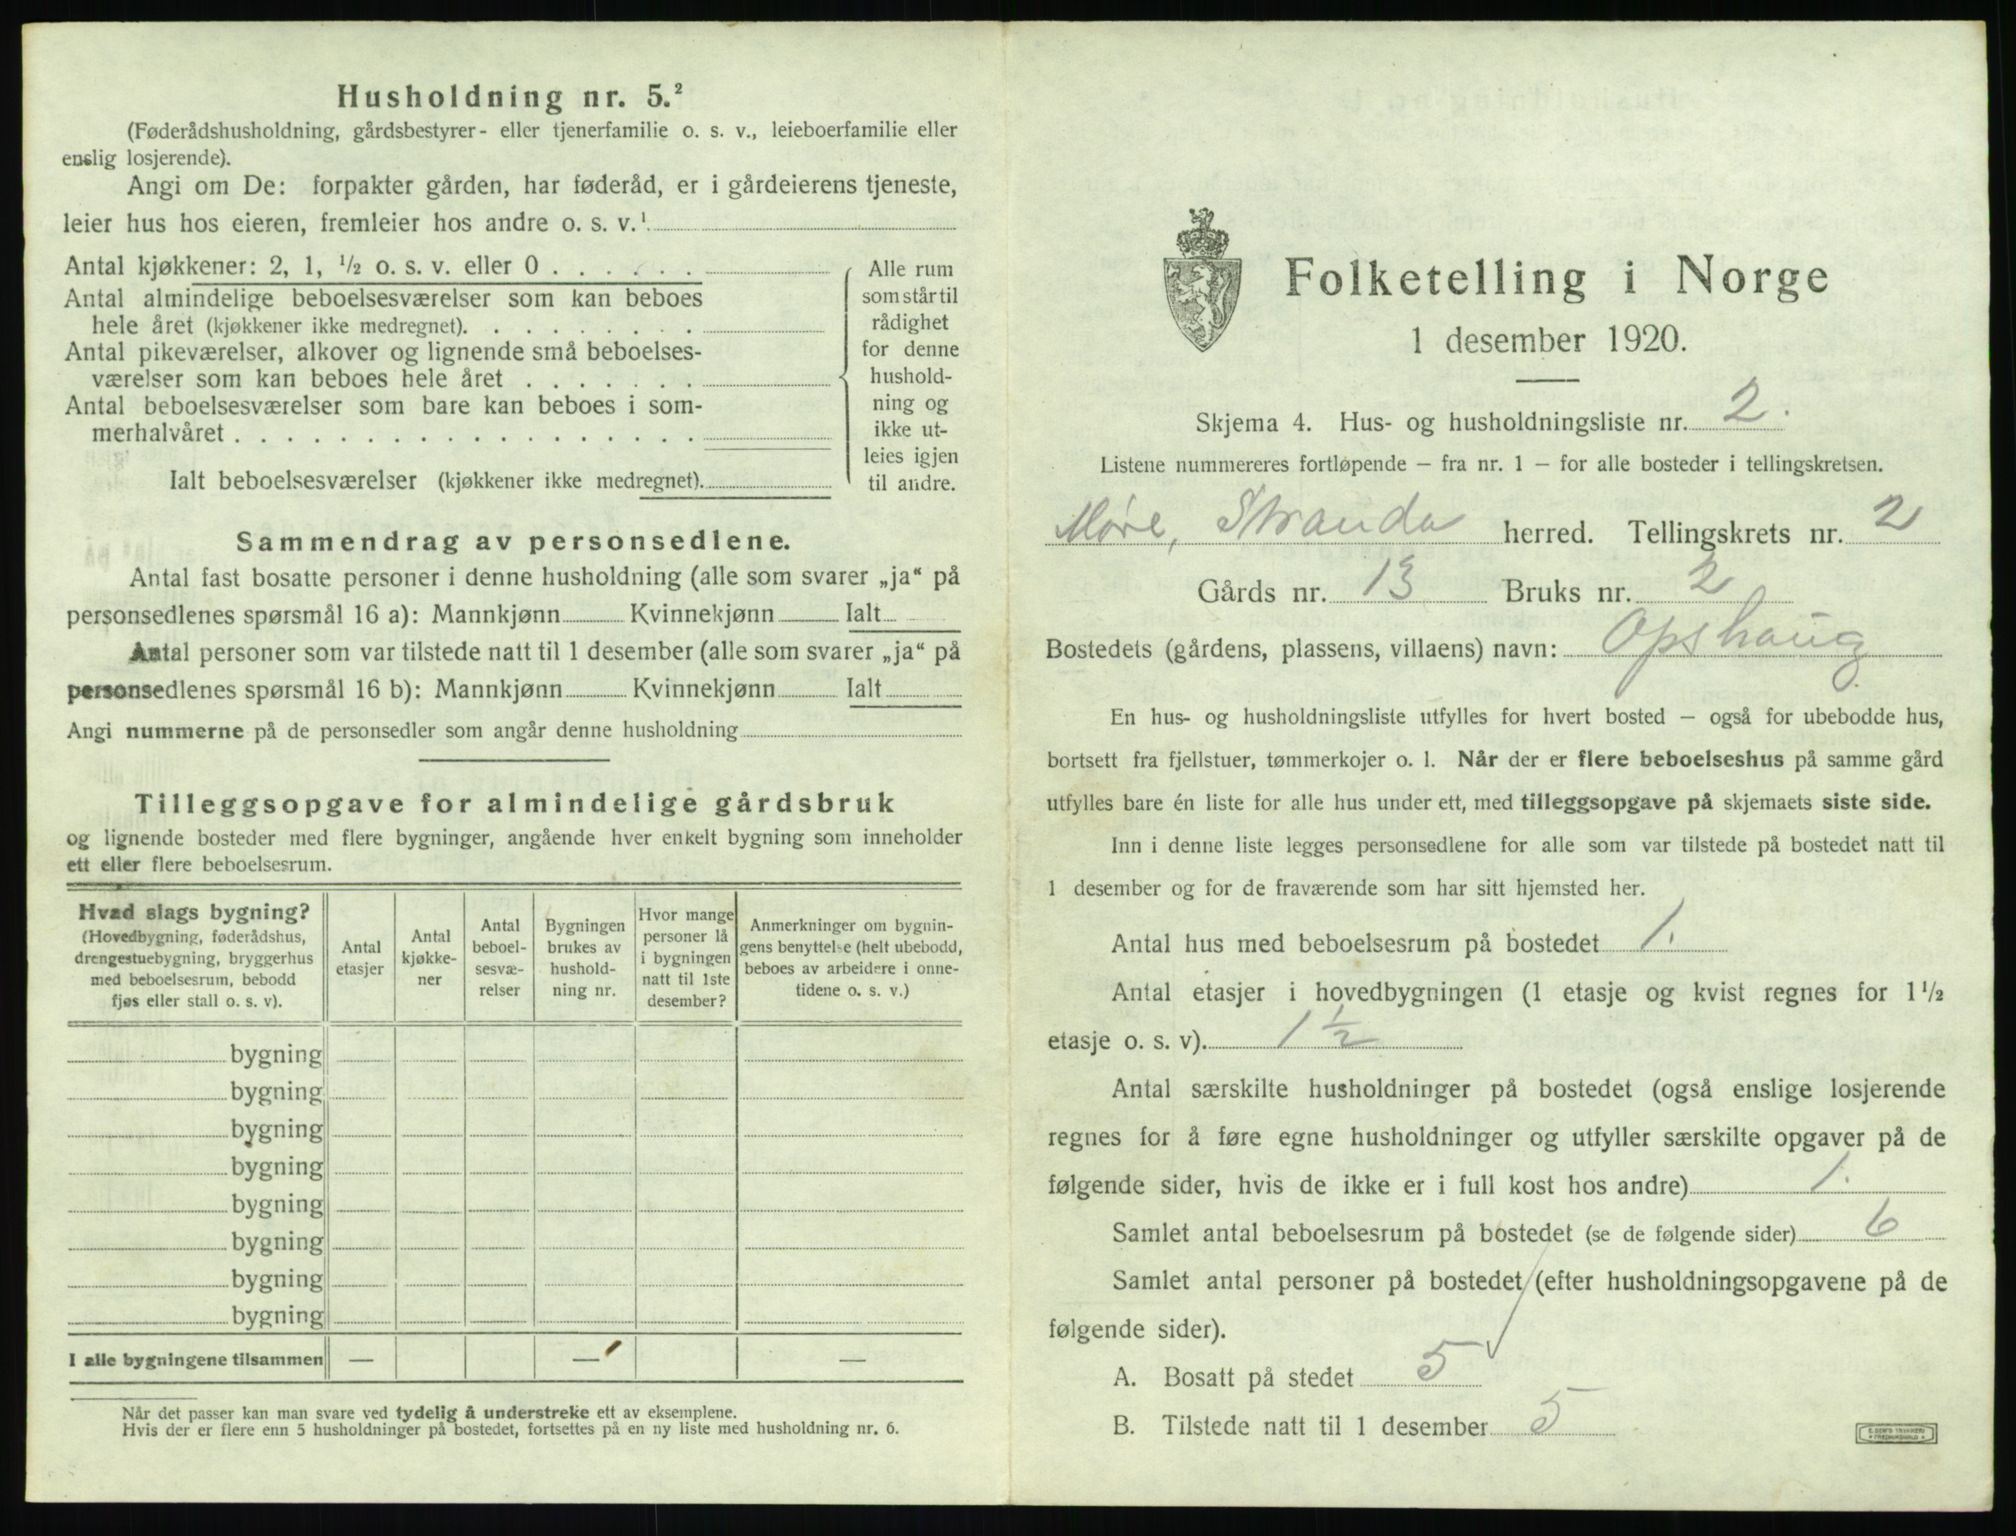 Husholdning nr. 5.²
(Føderådshusholdning, gårdsbestyrer- eller tjenerfamilie o. s. v., leieboerfamilie eller
enslig losjerende).
Angi om De: forpakter gården, har føderåd, er i gårdeierens tjeneste,
leier hus hos eieren, fremleier hos andre o. s. v.¹
Antal kjøkkener: 2, 1, ½ o. s. v. eller 0 . . . . . .
Antal almindelige beboelsesværelser som kan beboes
hele året (kjøkkener ikke medregnet). . . . . . . . .
Antal pikeværelser, alkover og lignende små beboelses-
værelser som kan beboes hele året . . . . . . .
Antal beboelsesværelser som bare kan beboes i som-
merhalvåret . . . . . . . . . . . . . . . . . .
Ialt beboelsesværelser (kjøkkener ikke medregnet).
Alle rum
som står til
rådighet
for denne
hushold-
ning og
ikke ut-
leies igjen
til andre.
Sammendrag av personsedlene.
Antal fast bosatte personer i denne husholdning (alle som svarer „ja“ på
personsedlenes spørsmål 16 a): Mannkjønn Kvinnekjønn Ialt
Antal personer som var tilstede natt til 1 desember (alle som svarer „ja“ på
personsedlenes spørsmål 16 b): Mannkjønn Kvinnekjønn Ialt
Angi nummerne på de personsedler som angår denne husholdning
Tilleggsopgave for almindelige gårdsbruk
og lignende bosteder med flere bygninger, angående hver enkelt bygning som inneholder
ett eller flere beboelsesrum.
Hvad slags bygning?
(Hovedbygning, føderådshus,
drengestuebygning, bryggerhus
med beboelsesrum, bebodd
fjøs eller stall o. s. v).
Antal
etasjer
Antal
kjøkke-
ner
Antal
beboel-
sesvæ-
relser
Bygningen
brukes av
hushold-
ning nr.
Hvor mange
personer lå
i bygningen
natt til 1ste
desember?
Anmerkninger om bygnin-
gens benyttelse (helt ubebodd,
beboes av arbeidere i onne-
tidene o. s. v.)
bygning
bygning
bygning
bygning
bygning
bygning
bygning
bygning
I alle bygningene tilsammen — — —
Når det passer kan man svare ved tydelig å understreke ett av eksemplene.
Hvis der er flere enn 5 husholdninger på bostedet, fortsettes på en ny liste med husholdning nr. 6.
Folketelling i Norge
1 desember 1920.
Skjema 4. Hus- og husholdningsliste nr. 2.
Listene nummereres fortløpende — fra nr. 1 — for alle bosteder i tellingskretsen.
Møre, Stranda herred. Tellingskrets nr. 2
Gårds nr. 13 Bruks nr. 2
Bostedets (gårdens, plassens, villaens) navn: Opshaug
En hus- og husholdningsliste utfylles for hvert bosted — også for ubebodde hus,
bortsett fra fjellstuer, tømmerkojer o. l. Når der er flere beboelseshus på samme gård
utfylles bare én liste for alle hus under ett, med tilleggsopgave på skjemaets siste side.
Inn i denne liste legges personsedlene for alle som var tilstede på bostedet natt til
1 desember og for de fraværende som har sitt hjemsted her.
Antal hus med beboelsesrum på bostedet 1.
Antal etasjer i hovedbygningen (1 etasje og kvist regnes for 1½
etasje o. s. v). 1½
Antal særskilte husholdninger på bostedet (også enslige losjerende
regnes for å føre egne husholdninger og utfyller særskilte opgaver på de
følgende sider, hvis de ikke er i full kost hos andre) 1.
Samlet antal beboelsesrum på bostedet (se de følgende sider) 6
Samlet antal personer på bostedet (efter husholdningsopgavene på de
følgende sider).
A. Bosatt på stedet 5
B. Tilstede natt til 1 desember 5